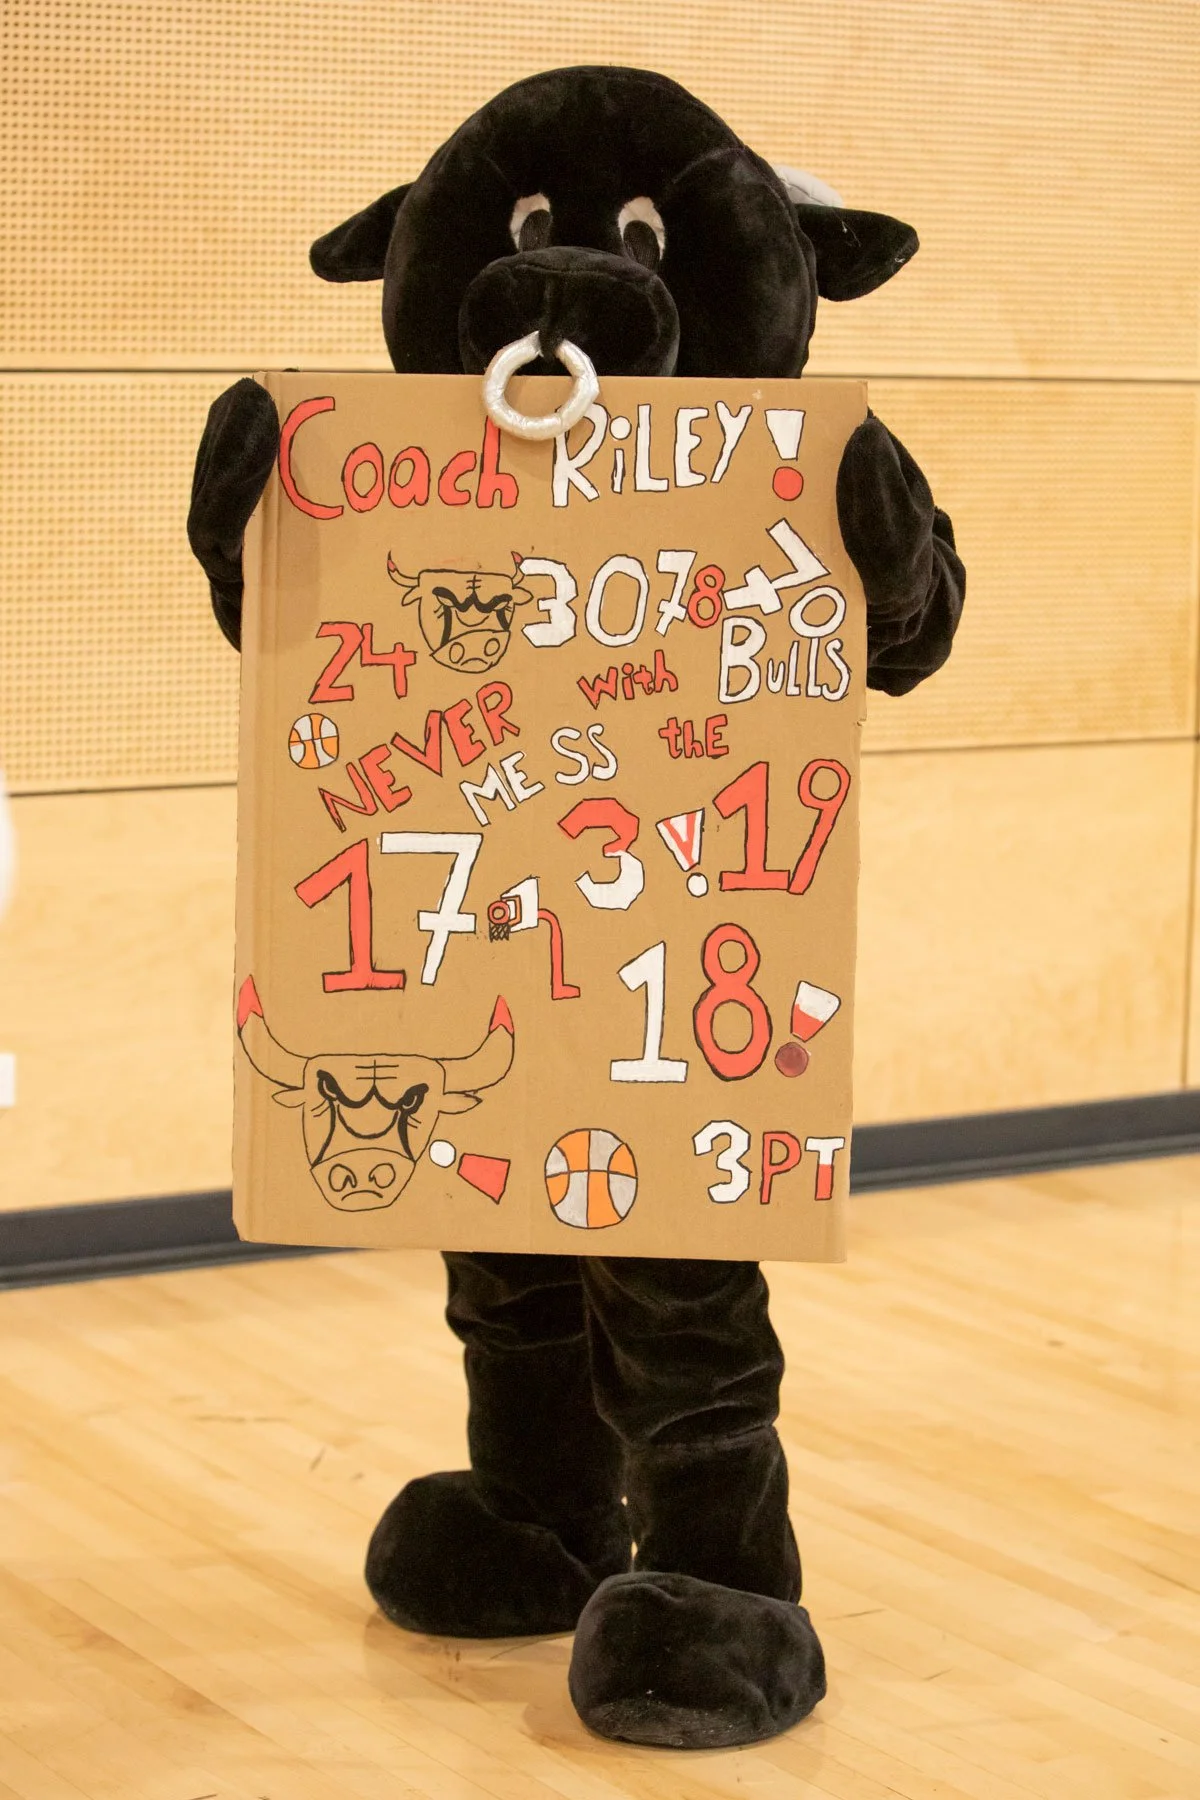 Coach RiLEY!
24 30 78 47 0
NEVER MESS with the BULLS
17 3! 19
18!
3PT